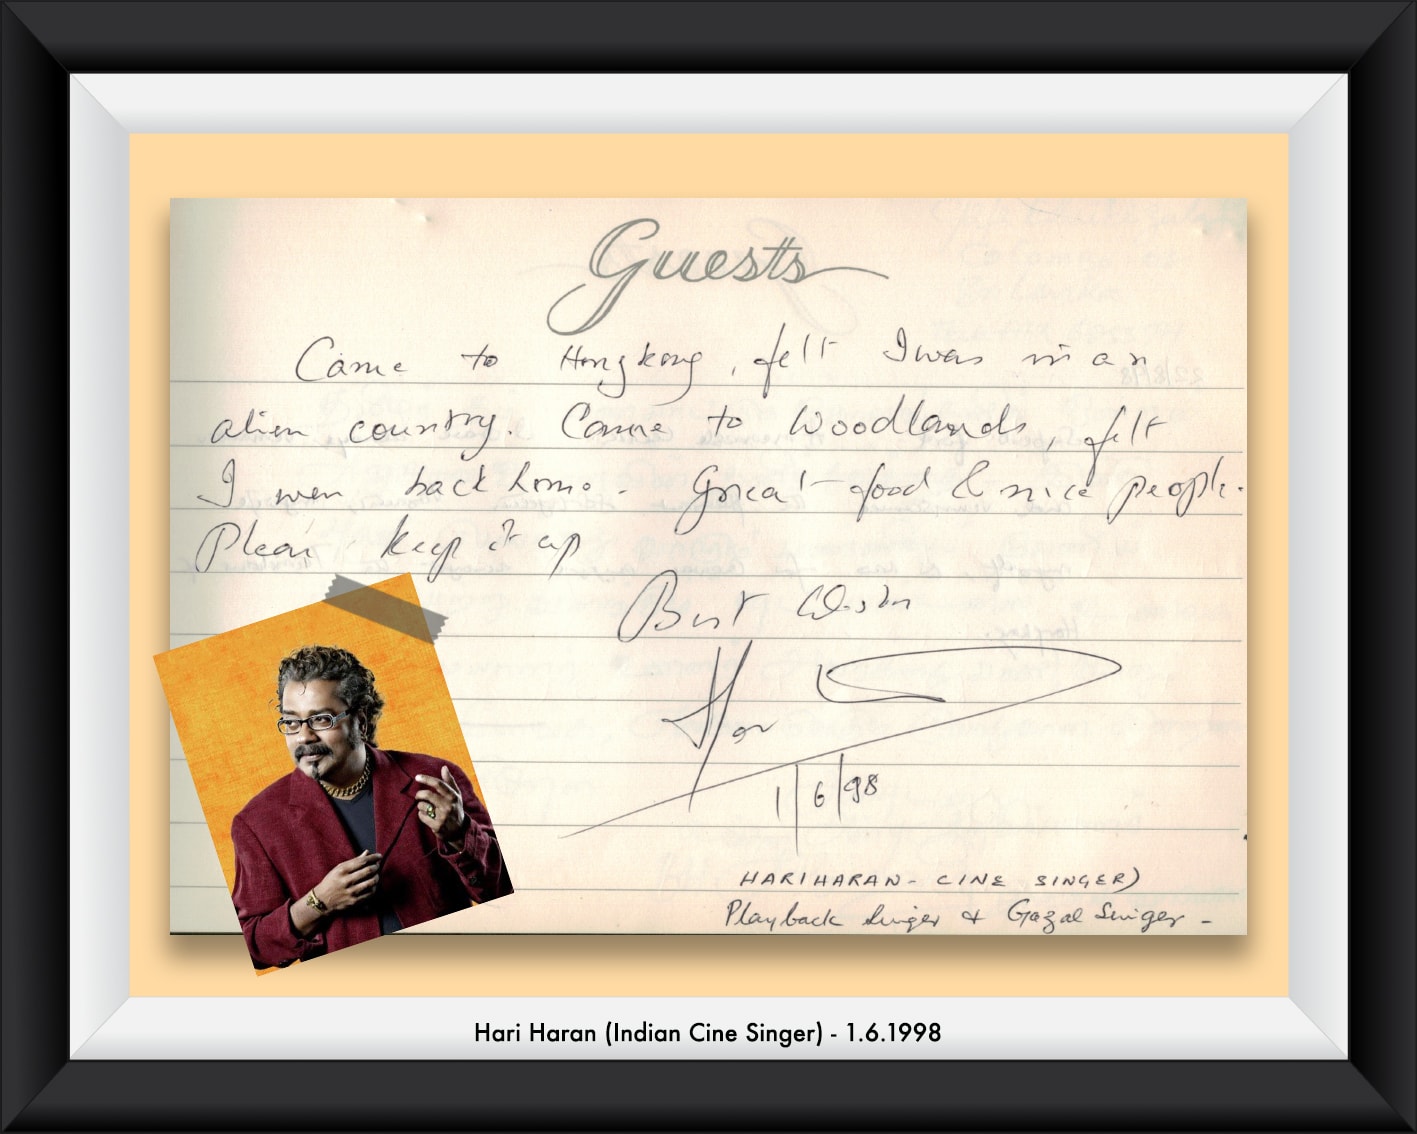 Guests
Came to Hongkong, felt I was in an
alien country. Came to Woodlands, felt
I was back home. Great food & nice people.
Please keep it up
Best Wishes
Har
1/6/98
HARIHARAN - CINE SINGER)
Playback Singer & Gazal Singer -
Hari Haran (Indian Cine Singer) - 1.6.1998